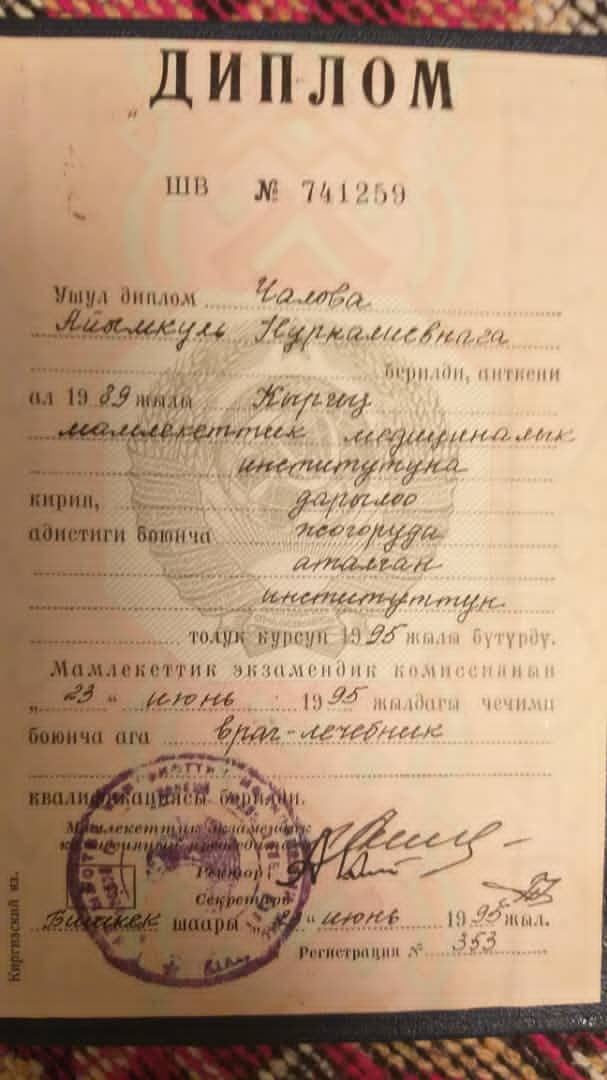 ДИПЛОМ
ШВ № 741259
Ушул диплом Чалова
Айымкуль Нурналиевнага
берилди, анткени
ал 1989 жылы Кыргыз
мамлекеттик медициналык
институтуна
кирип, дарылоо
адистиги боюнча жогоруда
аталган
институттун
толук курсун 1995 жылы бүтүрдү.
Мамлекеттик экзамендик комиссиянын
„23“ июнь 1995 жылдагы чечими
боюнча ага врач-лечебник
квалификациясы берилди.
Мамлекеттик экзамендик
комиссиянын председатели
Ректор
Секретарь
Бишкек шаары июнь 1995 жыл.
Регистрация № 353
Киргизский яз.